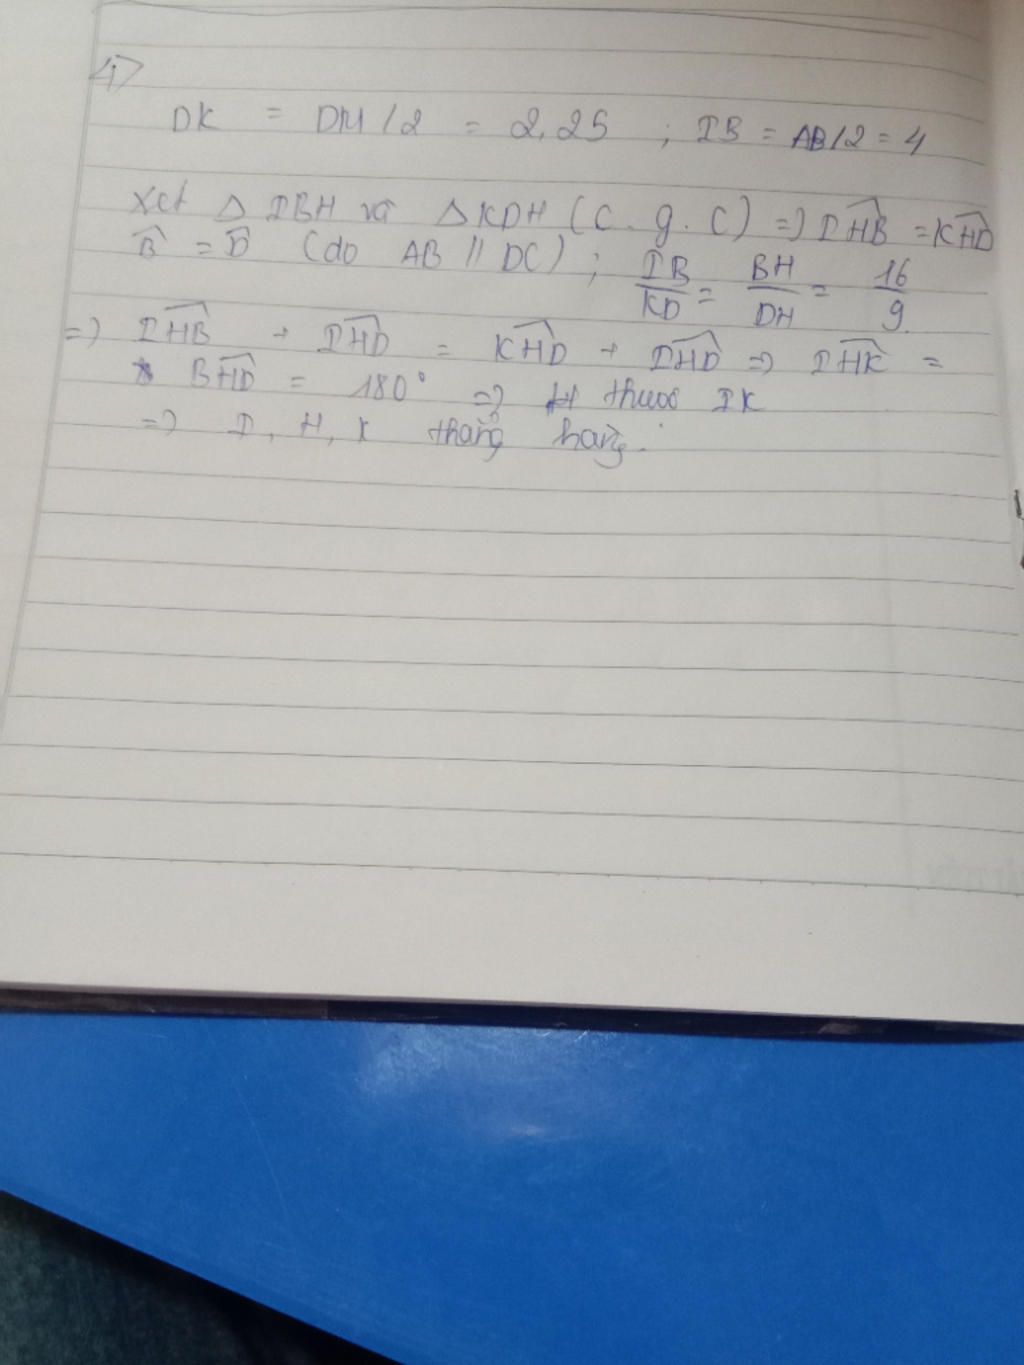 4)
DK = DM / 2 = 2,25 ; IB = AB/2 = 4
Xét △ IBH và △ KDH (c.g.c) => \widehat{IHB} = \widehat{KHD}
\widehat{B} = \widehat{D} (do AB // DC) ; \frac{IB}{KD} = \frac{BH}{DH} = \frac{16}{9}
=> \widehat{IHB} + \widehat{IHD} = \widehat{KHD} + \widehat{IHD} => \widehat{IHK} =
\widehat{BHD} = 180° => H thuộc IK
=> I, H, K thẳng hàng.